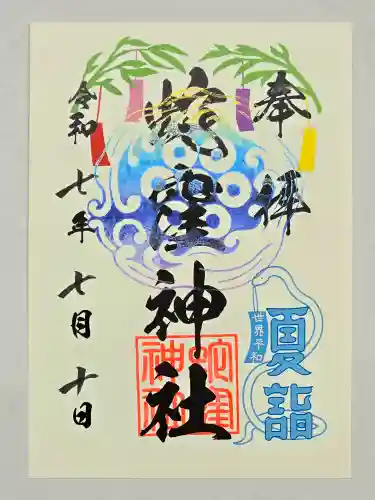 奉拝
蛇窪神社
令和七年七月十日
夏詣
世界平和
蛇窪神社